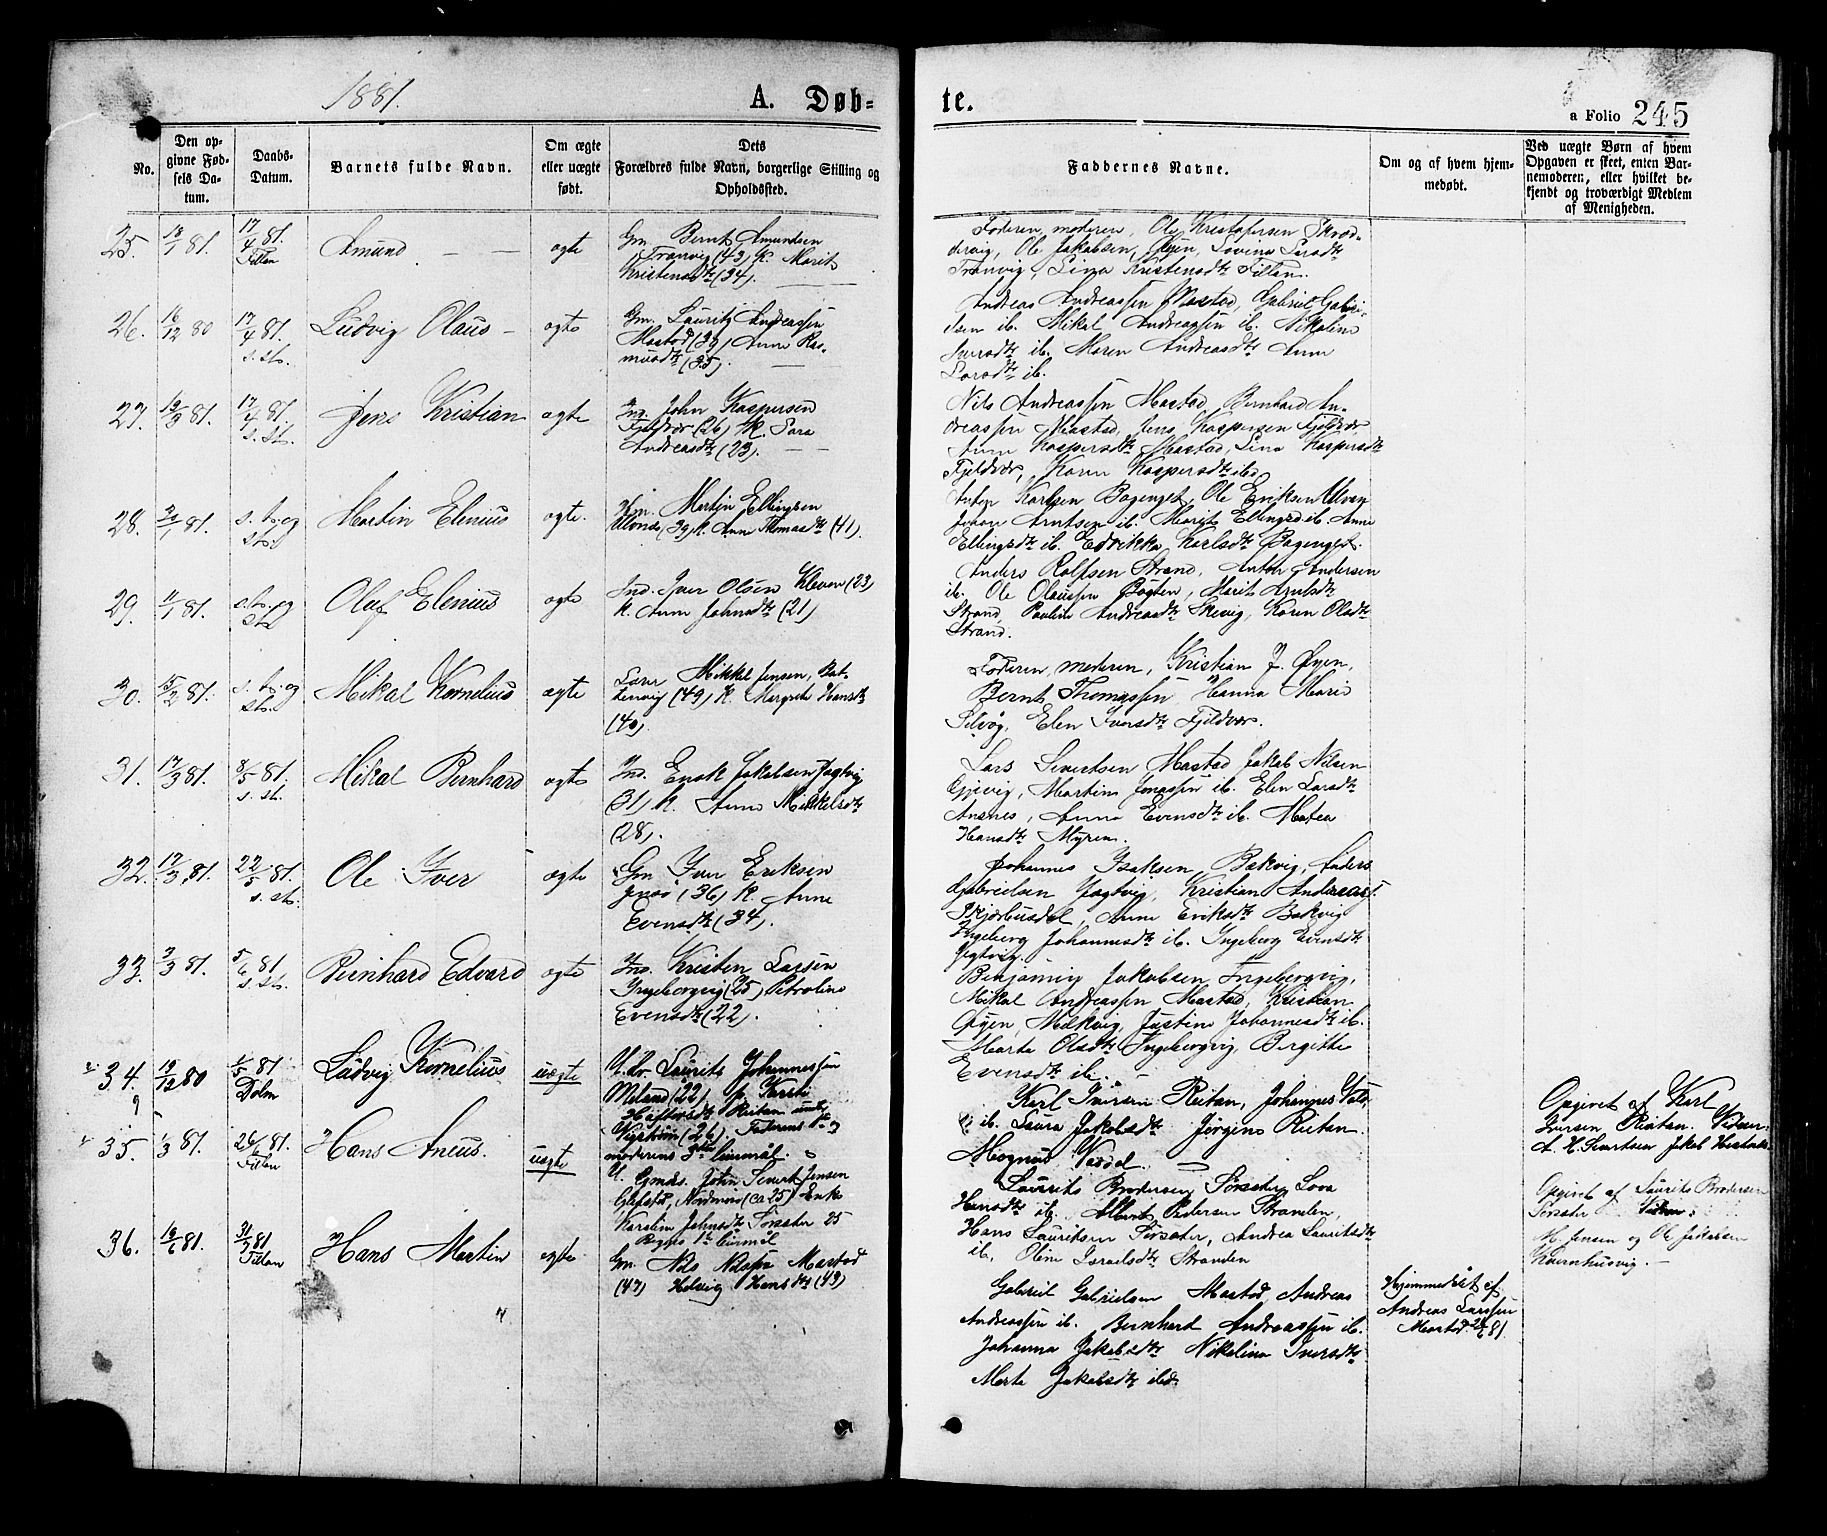 1881.
A. Døb-
te.
a Folio 245
No.
Den op-
givne Fød-
sels Da-
tum.
Daabs-
Datum.
Barnets fulde Navn.
Om ægte
eller uægte
født.
Dets
Forældres fulde Navn, borgerlige Stilling og
Opholdssted.
Faddernes Navne.
Om og af hvem hjem-
medøbt.
Ved uægte Børn af hvem
Opgaven er skeet, enten Bar-
nemoderen, eller hvilket be-
kjendt og troværdigt Medlem
af Menigheden.
25. 18/1 81. 17/4 81. Fillan
Amund
ægte
Gm. Bernt Amundsen
Tranvig (43) K. Marit
Kristensdtr (34).
Faderen, moderen, Ole Kristofersen
Ole Jakobsen Øyen, Lovina
Tranvig, Lina Kristensdtr Fillan.
26. 16/12 80 17/4 81. s. st.
Ludvig Olaus
ægte
Gm. Laurits Andreassen
Mastad (39) Anne Ras-
musdtr (35).
Andreas Andreassen Mastad, Gabriel Gabri-
elsen ib. Mikal Andreassen ib. Nikoline
Iversdtr ib. Maren Andreasdtr Anne
Larsdtr ib.
27. 19/3 81. 17/4 81. s. st.
Jens Kristian
ægte
Ind. John Kaspersen
Fjeldvær (26) K. Sara
Andreasdtr (23).
Nils Andreassen Mastad, Bernhard An-
dreassen Mastad, Jens Kaspersen Fjeldvær
Anne Kaspersdtr Mastad, Lina Kaspersdtr
Fjeldvær, Karen Kaspersdtr ibd.
28. 21/1 81. s. t. og st.
Martin Elenius
ægte.
Martin Ellingsen
Ulvan (39) K. Anne Thomasdtr (41).
Anton Karlsen Bagenget, Ole Eriksen Ulvan
Johan Arntsen ib. Marit Ellingsd ib. Anne
Ellingsdtr ib. Edrikka Karlsdtr Bagenget.
29. 11/1 81. s. t. og st.
Oluf Elenius
ægte
Ind. Iver Olsen Kleven (23)
K. Anne Johnsdtr (21)
Anders Rolfsen Strand, Anton Andersen
ib. Ole Olaussen Bogten, Marit Arntsdtr
Strand, Pauline Andreasdtr Skevig, Karen Olsdtr
Strand.
30. 15/2 81. s. t. og st.
Mikal Kornelius
ægte
Mikkel Jensen, Bek-
kenvig (49) K. Margrete Hansdtr
(40)
Faderen, moderen, Kristian J. Øyen,
Bernt Thomassen, Hanna Marie
Selvåg, Elen Iversdtr Fjeldvær.
31. 17/3 81. 8/5 81. s. st.
Mikal Bernhard
ægte
Ind. Enok Jakobsen Jagtvig
(31) K. Anne Mikkelsdtr
(28).
Lars Sivertsen Mastad Jakob Nilsen
Gjevig, Martin Jonassen ib. Elen Larsdtr
Ansnes, Anna Evensdtr ib. Matea
Hansdtr Myren.
32. 17/3 81. 22/5 81. s. st.
Ole Iver
ægte
Gm Iver Eriksen
(36) K. Anne
Evensdtr (34).
Johannes Isaksen, Bakvig, Anders
Gabrielsen Jagtvig, Kristian Andreass.
Skjærbusdal, Anne Eriksdtr Bakvig
Ingeborg Johannesdtr ib. Ingeborg Evensdtr
Jagtvig.
33. 2/3 81. 5/6 81. s. st.
Bernhard Edvard
ægte
Ind. Kristen Larsen
Ingeborgvig (25) Petroline
Evensdtr (22).
Benjamin Jakobsen Ingeborgvig,
Mikal Andreassen Mastad, Kristian
Øyen, Melkvig, Justine Johannesdtr ib.
Marta Olsdtr Ingeborgvig, Birgitte
Evensdtr ib.
34. 19/12 80 1/5 81 Dolm
Ludvig Kornelius
uægte
Laurits Johannessen
Meland (22) p. Karsti
Haftorsdtr Reitan
(26). Faderens 1te
moderens 3die Leiermål.
Karl Iversen Reitan, Johannes
ib. Laura Jakobsdtr Jørgine Reitan.
Magnus Vedøl.
Opgivet af Karl
Iversen Reitan. Vidner:
A. H. Sivertsen Jakob
35. 1/3 81. 26/6 81. Fillan
Hans Aneus.
uægte
John Sivert Jensen
(ca 25) Enke
Karoline Johnsdtr Sørsæter 25
Begges 1te Leiermål
Laurits Brodersen Sørsæter Lova
Hansdtr ib. Albert Pedersen Stranden,
Hans Lauritsen Sørsæter, Andrea Lauritsdtr
ib. Oline Israelsdtr Stranden
Opgivet af Laurits Brodersen
Sørsæter Vidner:
M. Jensen og Ole Jakobsen
Kvernhusvig.
36. 19/6 81. 31/7 81 Fillan
Hans Martin
ægte
Gm. Nils Nilssen Mastad
(47) Helvig Hansdtr (43)
Gabriel Gabrielsen Mastad, Andreas
Andreassen ib. Bernhard Andreassen ib.
Johanna Jakobsdtr Nikoline Iversdtr
Marta Jakobsdtr ibd.
Hjemmedøbt af
Andreas Larssen
Mastad 81.